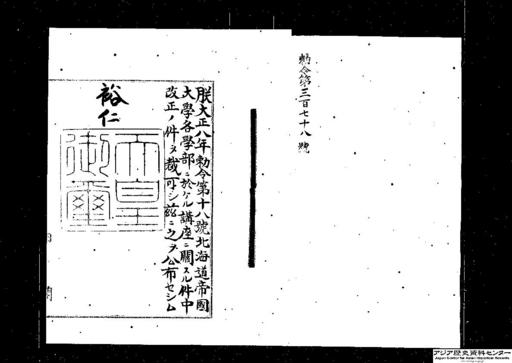 勅令第三百七十八號
朕大正八年勅令第十八號北海道帝國
大學各學部ニ於ケル講座ニ關スル件中
改正ノ件ヲ裁可シ茲ニ之ヲ公布セシム
裕仁
天皇
御璽
内閣
アジア歴史資料センター
Japan Center for Asian Historical Records